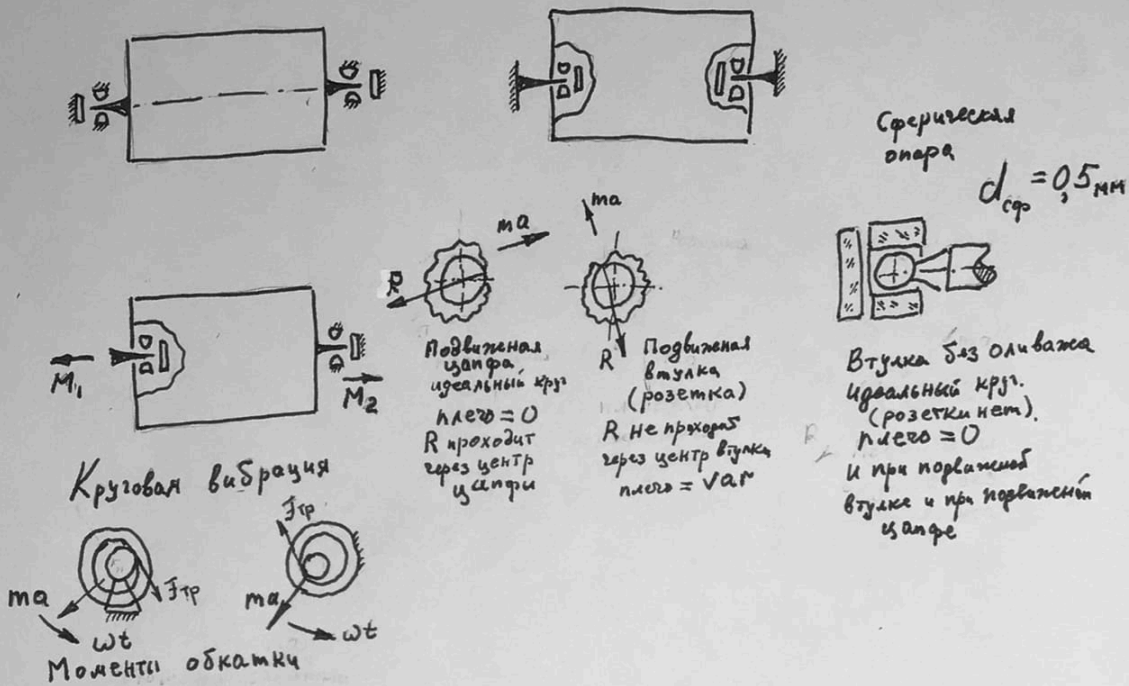 Сферическая
опора
dсф = 0,5 мм
ma
R
Подвижная
цапфа
идеальный круг
плечо = 0
R проходит
через центр
цапфы
ma
R
Подвижная
втулка
(розетка)
R не проходит
через центр втулки
плечо = var
Втулка без оливажа
идеальный круг.
(розетки нет).
плечо = 0
и при подвижной
втулке и при подвижной
цапфе
M₁
M₂
Круговая вибрация
Fтр
ma
ωt
Fтр
ma
ωt
Моменты обкатки